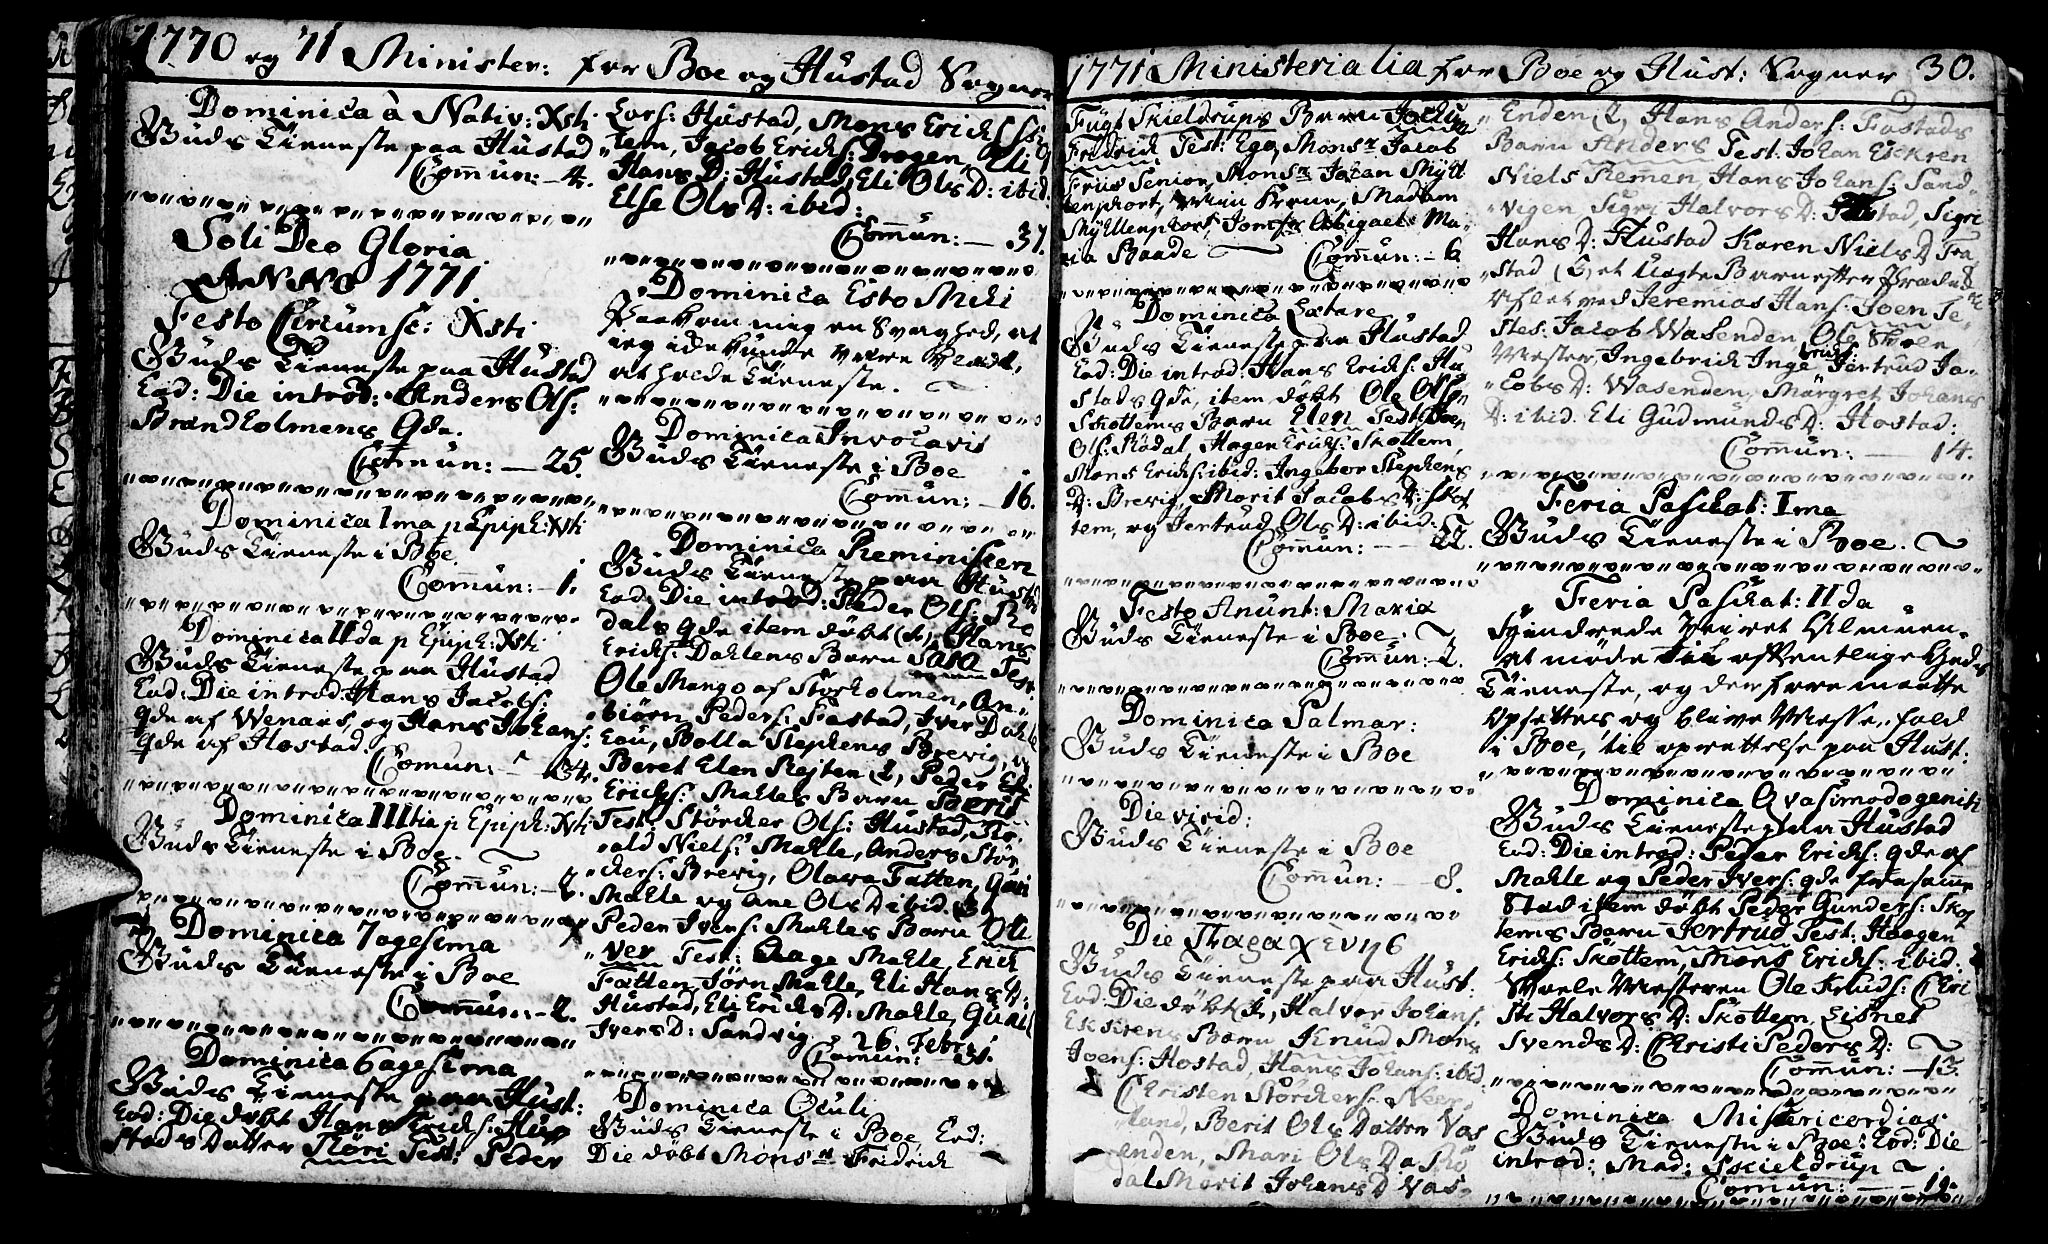 1770 og 71 Minister: for Boe og Hustad Sogner
Dominica à Nativ: Xsti
Guds Tieneste paa Hustad
Com̄un: — 4.
Soli Deo Gloria
ANNO 1771.
Festo Circumsc: Xsti
Guds Tieneste paa Hustad
Eod: Die introd: Anders Ols:
Brandholmens Qde.
Com̄un: — 25.
Dominica 1ma p Epiph: Xsti
Guds Tieneste i Boe
Com̄un: — 1.
Dominica IIda p Epiph: Xsti
Guds Tieneste paa Hustad
Eod: Die introd: Hans Jacobs:
Qde af Wenaas, og Hans Johans:
Qde af Hostad
Com̄un:
Dominica IIItia p Epiph: Xsti
Guds Tieneste i Boe.
Com̄un: — 2.
Dominica 7agesima
Guds Tieneste i Boe
Com̄un: — 2.
Dominica 6agesima
Guds Tieneste paa Hust:
Eod: Die døbt Hans Erichs: Hu
stads Datter Flöri Test: Peder
Lars: Hustad, Mons Erichs:
tem, Jacob Erichs: Dragen, Eli
Hans D: Hustad, Eli Ols D: ibid.
Else Ols D: ibid:
Com̄un: — 37.
Dominica Esto Mihi
Paakom mig en Svaghed, at
ieg icke kunde være
at holde Tieneste.
Dominica Invocavit
Guds Tieneste i Boe
Com̄un: — 16.
Dominica Reminiscere
Guds Tieneste paa Hustad
Eod: Die introd: Peder Ols: Rö
dals qde item döbt (1, Hans
Erichs: Dahlens Barn Sara Test:
Ole Mango af Storholmen, An-
biörn Peders: Fastad, Iver Dahle
Eau, Bolla Stephens Brevig, og
Beret Elen Rejten (2, Peder
Erichs: Mahles Barn Berit
Test: Störcher Ols: Hustad,
ald Niels: Mahle, Anders Stör
chers: Brevig, Olava Tatten, Guri
Mahle og Ane Ols D ibid. (3,
Peder Ivers: Mahles Barn Oli
ver Test: Aage Mahle, Erich
Fatten, Jörn Mahle, Eli Hans D:
Hustad, Eli Erichs D: Mahle, Guri
Ivers D: Sandvig
26. Febr:
Com̄un: 31.
Dominica Oculi
Guds Tieneste i Boe Eod:
Die döbt Monsr Fridrich
1771 Ministerialia for Boe og Hust: Sogner 30.
Fügl Skieldrups Barn Jochum
Fridrich Test: Ego, Monsr Jacob
Friis Senior, Monsr Johan Mÿll
enphort, Min Kone, Madam
Mÿllenphort, Jomfr Abigael Ma-
ria Baade
Com̄un: — 6
Dominica Lætare
Guds Tieneste paa Hustad
Eod: Die introd: Hans Erichs: Hu
stads qde, item döbt Ole Ols:
Skottems Barn Elen Test: Joen
Ols: Rödal, Hagen Erichs: Skottem,
Mons Erichs: ibid: Ingebor Stephens
D: Brevig, Marit Jacobs D: Skot
tem, og Jertrud Ols D: ibid:
Com̄un: — 22.
Festo Anunt: Mariæ
Guds Tieneste i Boe.
Com̄un: 2.
Dominica Palmar:
Guds Tieneste i Boe
Die virid:
Guds Tieneste i Boe
Com̄un: — 8.
Die
Guds Tieneste paa Hust:
Eod: Die döbt (1, Halvor Johans:
Eckrens Barn Knud Mons
Joens: Hostad, Hans Johans: ibid.
Christen Störchers:
land, Berit Ols Datter Vas
enden, Mari Ols D
dal Marit Johans D Vas-
enden, (2, Hans Anders: Fastads
Barn Anders Test: Johan Eckren
Niels Remen, Hans Johans: Sand-
vigen, Sigri Halvors D: Fastad, Sigri
Hans D: Hustad Karen Niels D Fa
stad (3, et Uægte Barn efter
aflet ved Jeremias Hans: Soen Te-
stes: Jacob Wasenden, Ole Skole
Mester, Ingebrich Inge brichs: Jertrud Ja-
cobs D: Wasenden, Margret Johans
D: ibid. Eli Gudmunds D: Hostad:
Com̄un: — 14.
Feria Paschat: Ima
Guds Tieneste i Boe.
Feria Paschat: IIda
hindrede Veiret Almuen
at möde til offentlige Guds
Tieneste, og derfore maatte
opsettes og blive Messe-fald
i Boe, til oprettelse paa Hust:
Dominica Qvasimodogeniti
Guds Tieneste paa Hustad
Eod: Die introd: Peder Erichs: qde af
Mahle og Peder Ivers: qde fra samme
Stad item döbt Peder Gunders: Skot
tems Barn Jertrud Test: Haagen
Erichs: Skottem, Mons Erichs: ibid.
Skole Mesteren Ole Knuds: Chri
sti Halvors D: Skottem, Lisbet
Svends D: Christi Peders D:
Com̄un: — 13.
Dominica Misericordias
Guds Tieneste i Boe: Eod: Die
introd: Mad: Skieldrup
Com̄un: — 19.